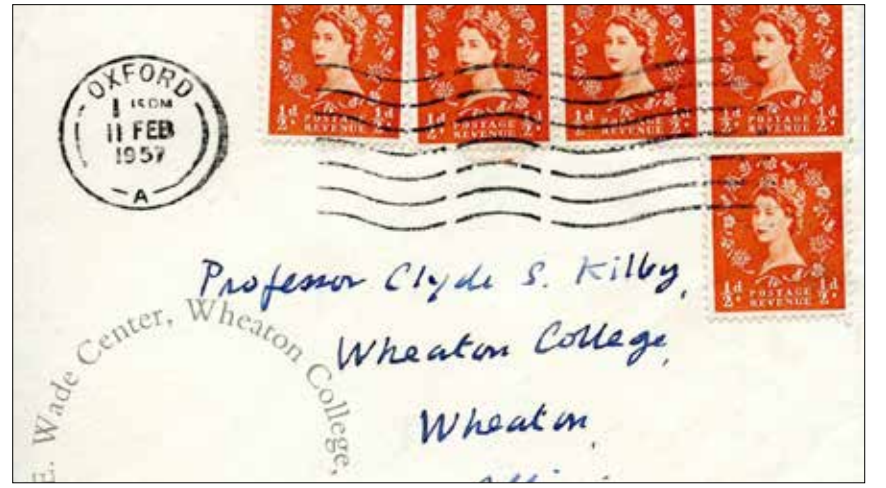 OXFORD
15 PM
11 FEB
1957
A
½d POSTAGE REVENUE ½d
½d POSTAGE REVENUE ½d
½d POSTAGE REVENUE ½d
½d POSTAGE REVENUE ½d
½d POSTAGE REVENUE ½d
Professor Clyde S. Kilby,
Wheaton College,
Wheaton,
E. Wade Center, Wheaton College,